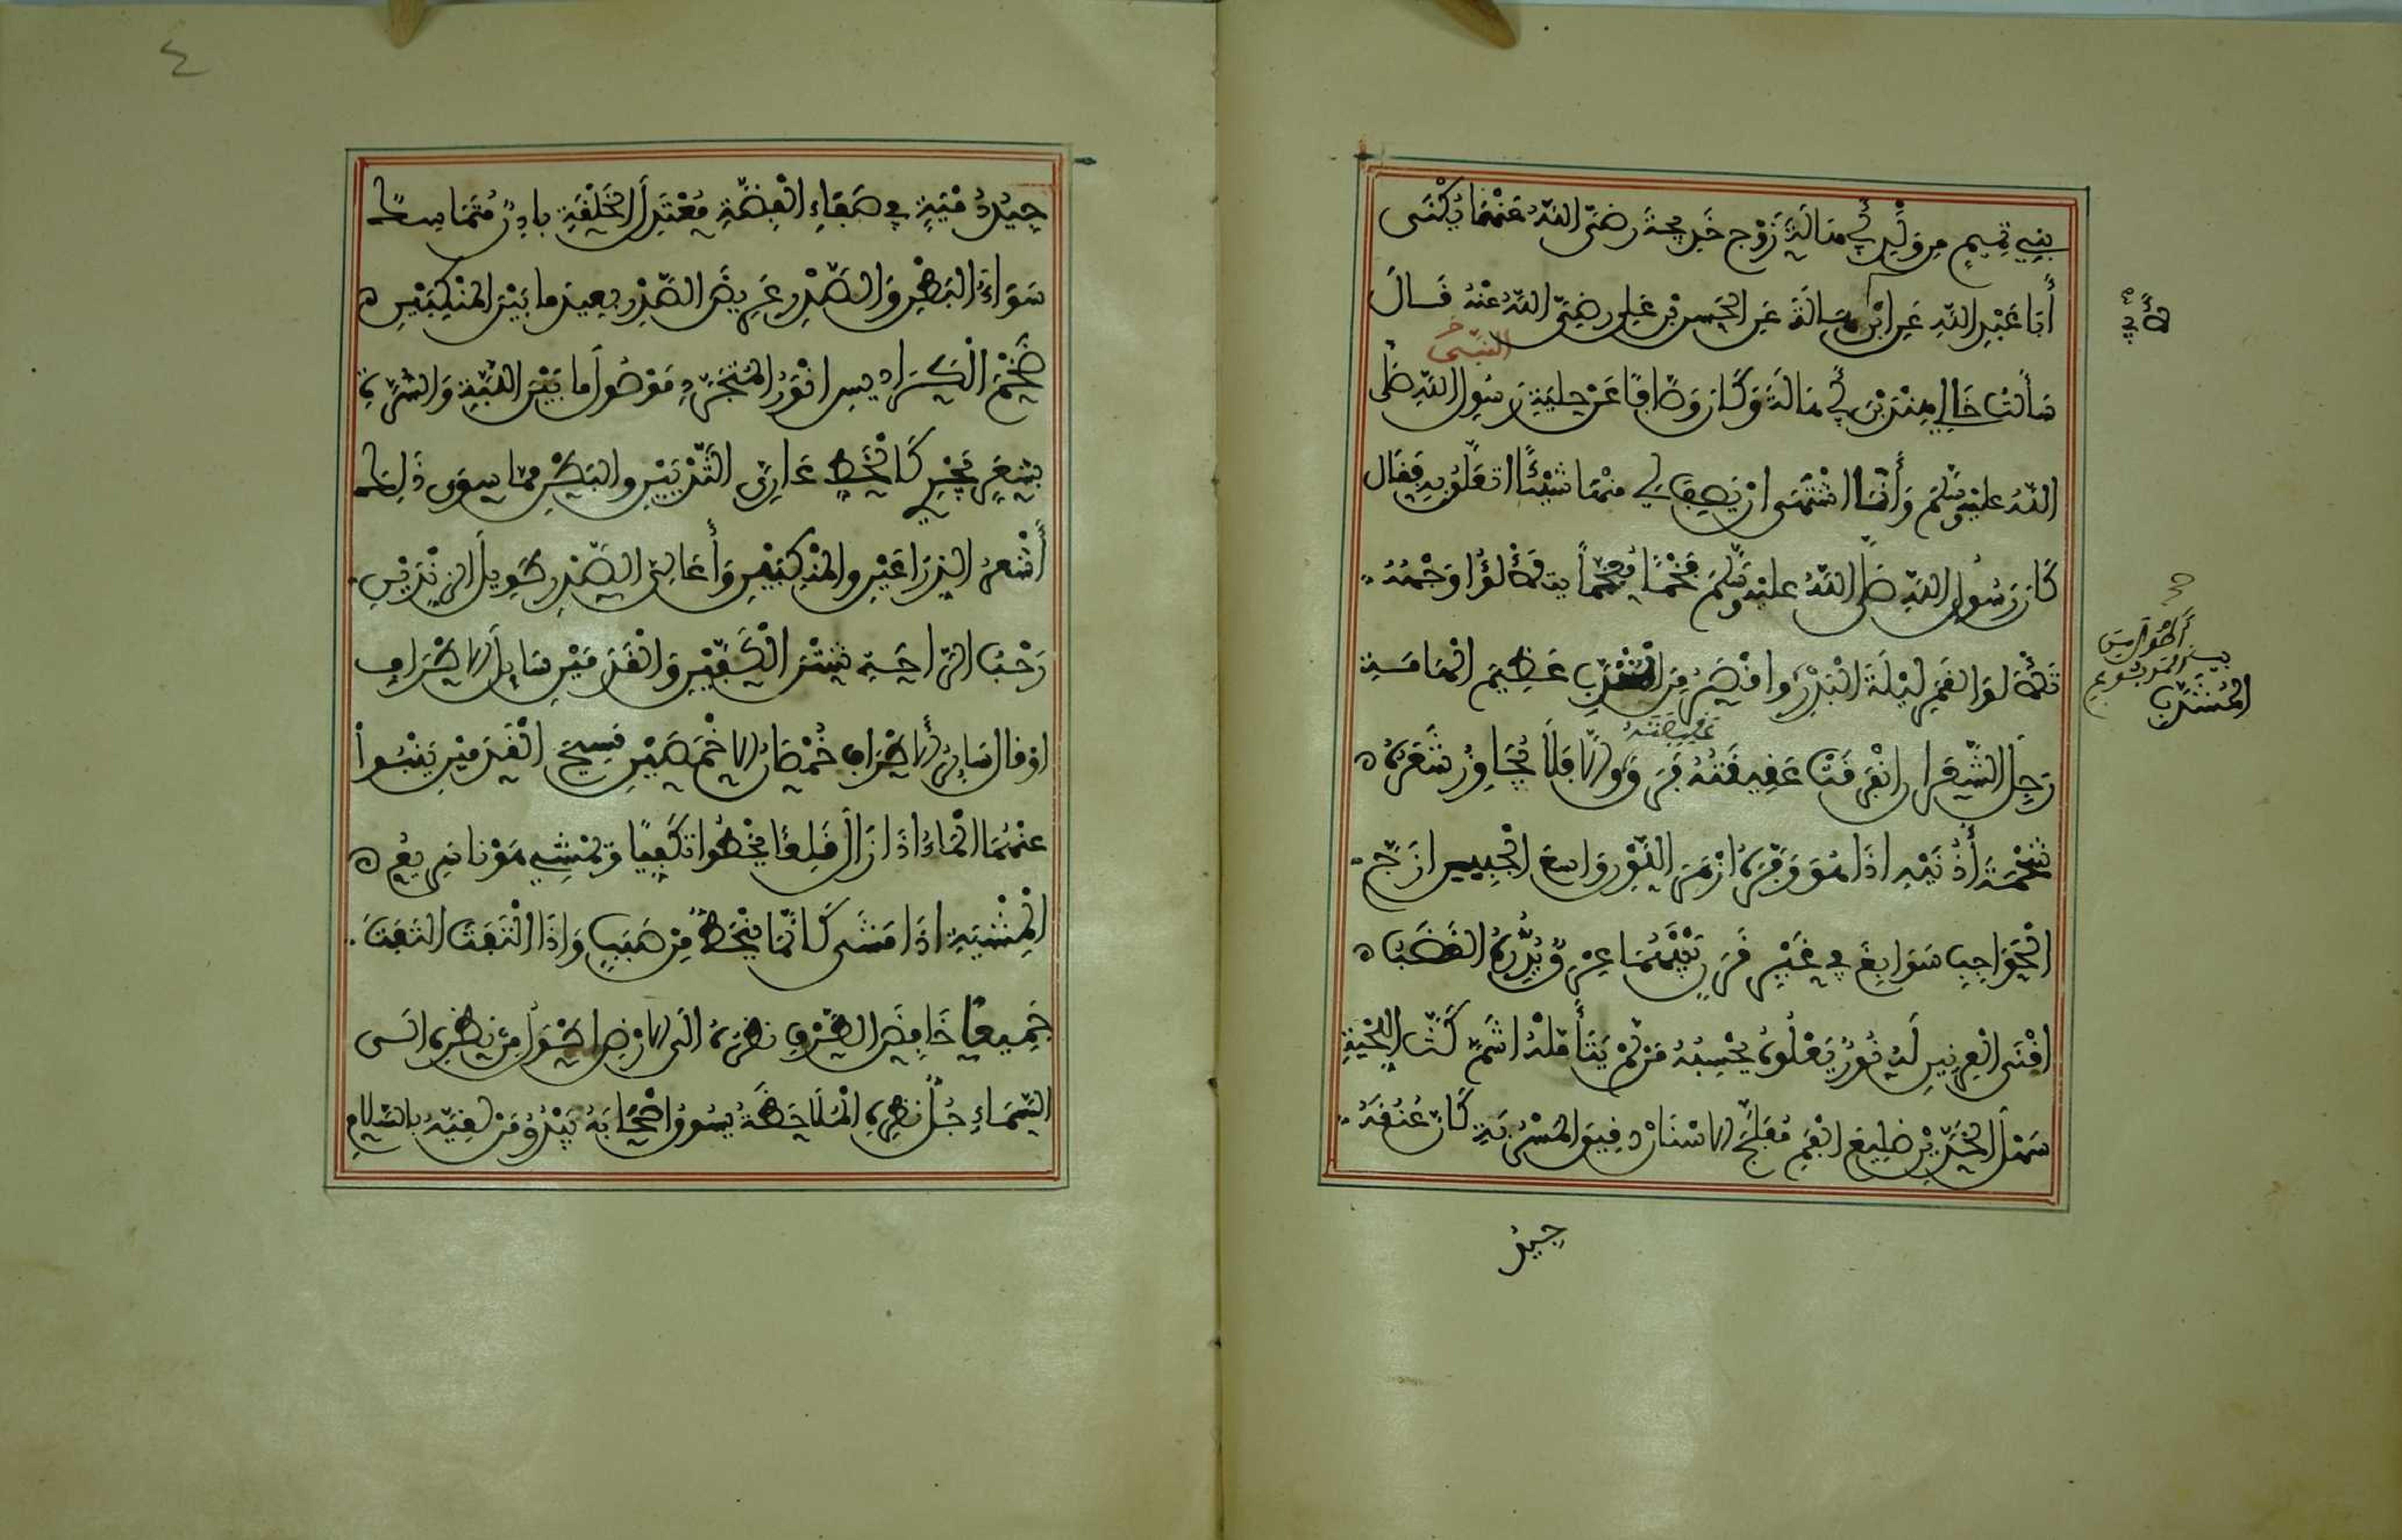 بني تميم من ولد أبي هالة زوج خديجة رضي الله عنهما يكنى
أبا عبد الله عن ابن هالة عن الحسن بن علي رضي الله عنه قال
لأبي
النبي خ
سألت خالي هند بن أبي هالة وكان وصافا عن حلية رسول الله صلى
الله عليه وسلم وأنا اشتهي ان يصف لي منها شيئا اتعلق به فقال
كان رسول الله صلى الله عليه وسلم فخما مفخما يتلألؤا وجهه
تلألؤ القمر ليلة البدر واقصر من المشذب عظيم الهامة
أطول من
المربوع
المشذب
رجل الشعر ان انفرقت عقيقته فرق والا فلا يجاوز شعره
عقيصته
شحمة أذنيه اذا هو وفره ازهر اللون واسع الجبين ازج
الحواجب سوابغ في غير قرن بينهما عرق يدره الغضب
اقنى العرنين له نور يعلوه يحسبه من لم يتأمله اشم كث اللحية
سهل الخدين ضليع الفم مفلج الاسنان دقيق المسربة كان عنقه
جيد
٤
جيد دمية في صفاء الفضة معتدل الخلق بادن متماسك
سواء البطن والصدر عريض الصدر بعيد ما بين المنكبين
ضخم الكراديس انور المتجرد موصول ما بين اللبة والسرة
بشعر يجري كالخط عاري الثديين والبطن مما سوى ذلك
أشعر الذراعين والمنكبين وأعالي الصدر طويل الزندين
رحب الراحة شثن الكفين والقدمين سايل الاطراف
او قال سائن الاطراف خمصان الاخمصين مسيح القدمين ينبوا
عنهما الماء اذا زال زال قلعا يخطوا تكفيا ويمشي هونا سريع
المشية اذا مشى كانما ينحط من صبب واذا التفت التفت
جميعا خافض الطرف نظره الى الارض اطول من نظره الى
السماء جل نظره الملاحظة يسوق اصحابه يبدؤ من لقيه بالسلام